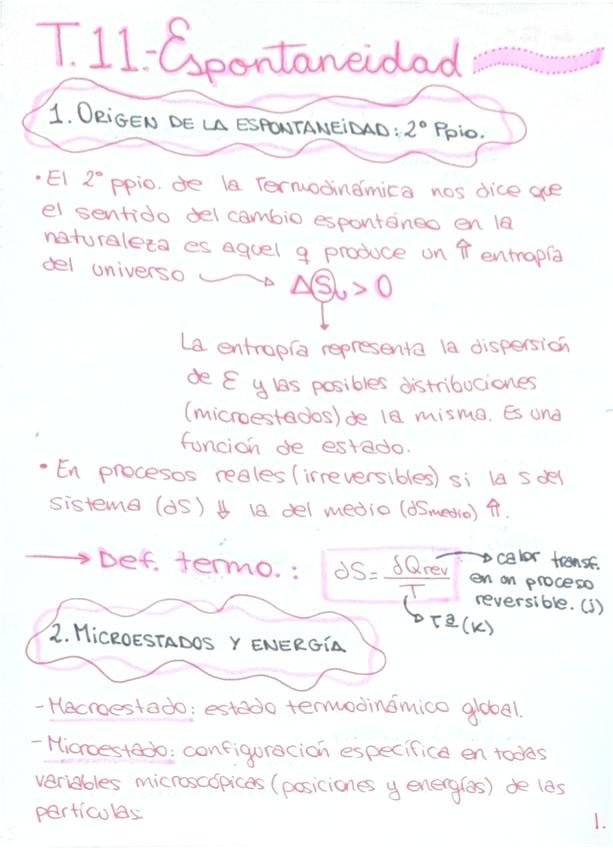 T.11.-Espontaneidad
1. ORIGEN DE LA ESPONTANEIDAD: 2º Ppio.
• El 2º ppio. de la Termodinámica nos dice que
el sentido del cambio espontáneo en la
naturaleza es aquel q produce un ⇑ entropía
del universo → ΔSu > 0
↓
La entropía representa la dispersión
de E y las posibles distribuciones
(microestados) de la misma. Es una
función de estado.
• En procesos reales (irreversibles) si la S del
sistema (dS) ⇓ la del medio (dSmedio) ⇑.
→ Def. termo.: dS = δQrev / T → calor transf.
en un proceso
reversible. (j)
Tª (K)
2. MICROESTADOS Y ENERGÍA
- Macroestado: estado termodinámico global.
- Microestado: configuración específica en todas
variables microscópicas (posiciones y energías) de las
partículas.
1.